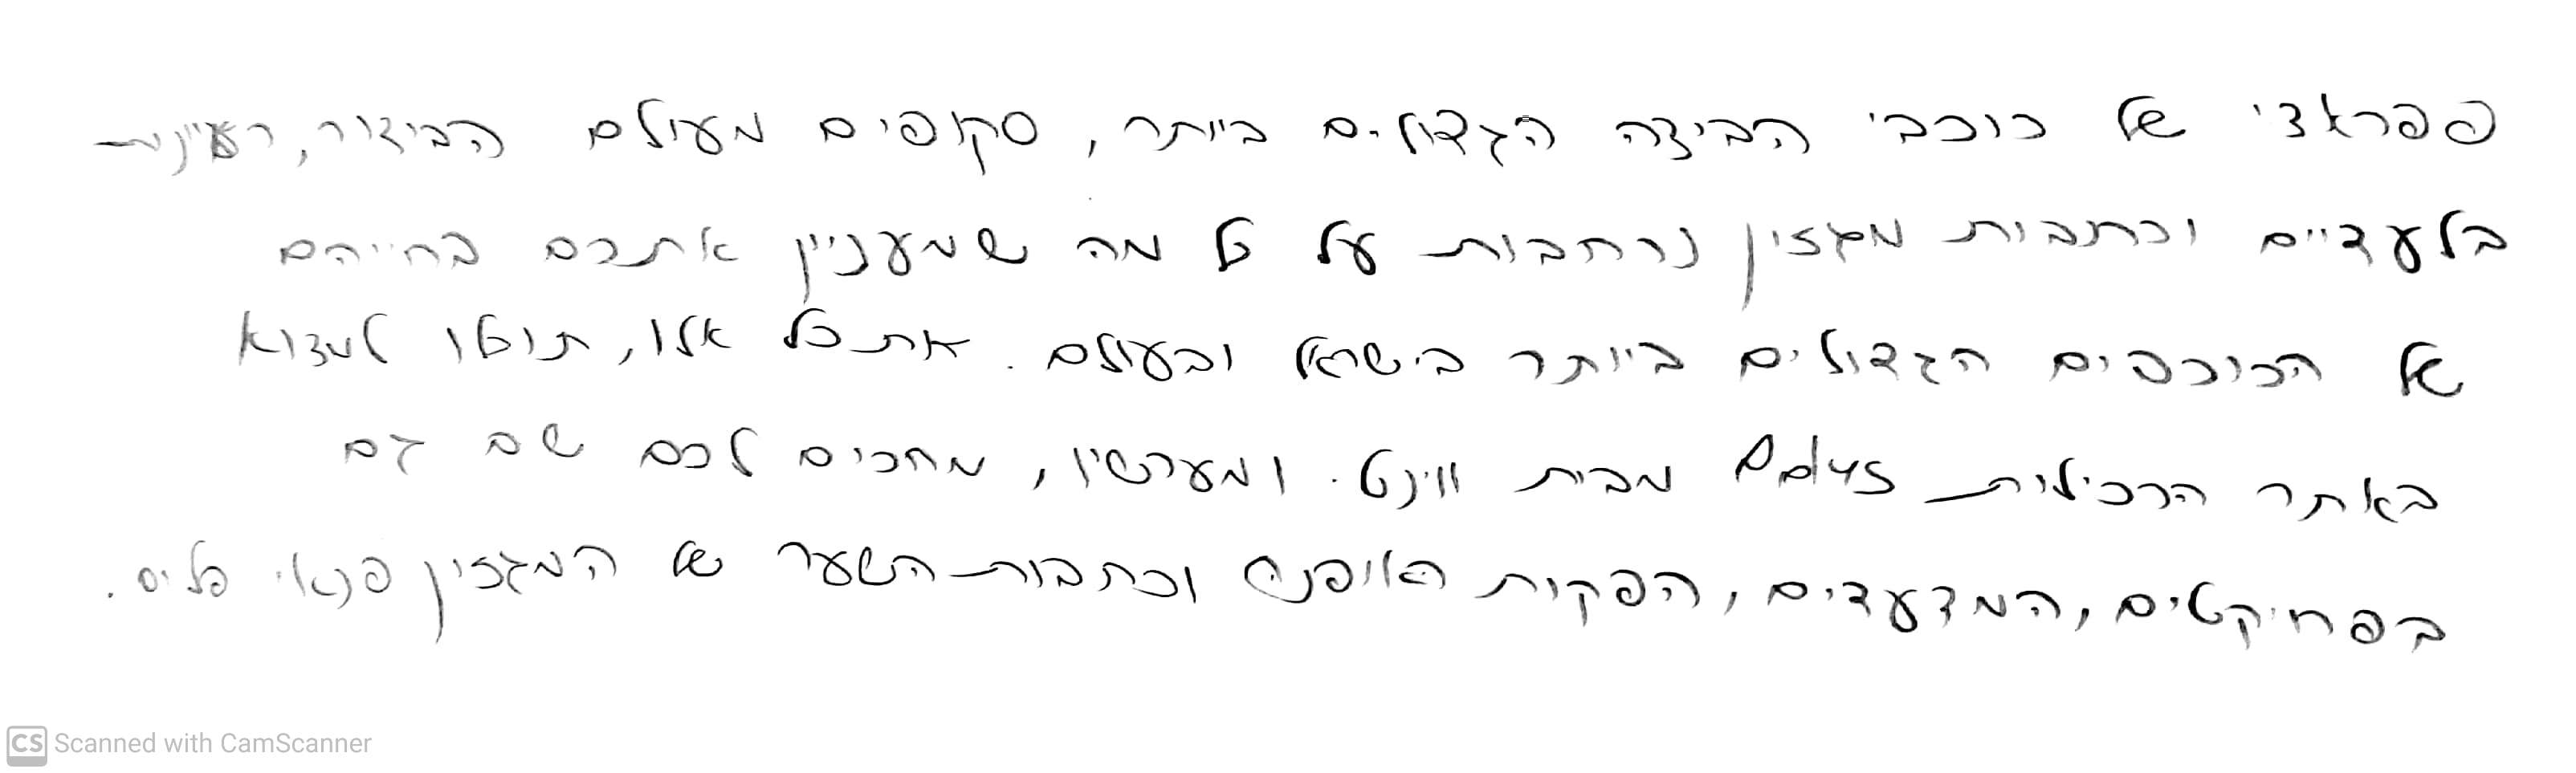 פפראצי של כוכבי הביצה הגדולים ביותר, סקופים מעולם הבידור, רעיונות
בלעדיים וכתבות מגזין נרחבות על כל מה שמעניין אתכם בחייהם
של הכוכבים הגדולים ביותר בישראל ובעולם. את כל אלו, תוכלו למצוא
באתר הרכילות pplus מבית ווינט. ומעכשיו, מחכים לכם שם גם
הפרויקטים, המצעדים, הפקות האופנה וכתבות השער של המגזין פנאי פלוס.
CS Scanned with CamScanner